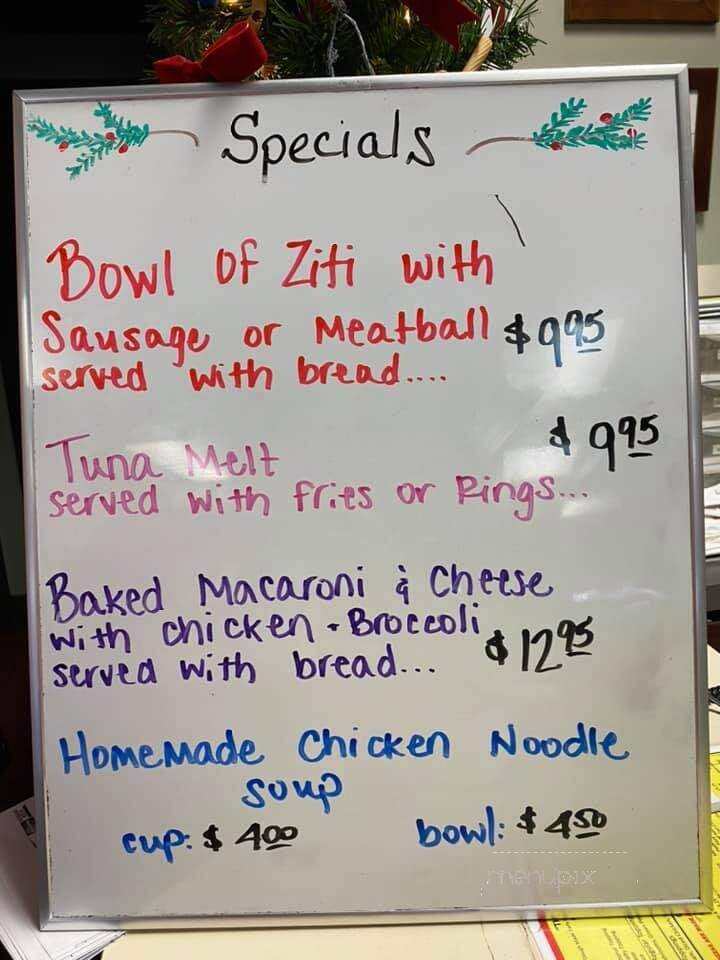 Specials
Bowl of Ziti with
Sausage or Meatball $9.95
served with bread....
$9.95
Tuna Melt
served with fries or Rings...
Baked Macaroni & Cheese
with chicken + Broccoli
served with bread... $12.95
Homemade Chicken Noodle
Soup
cup: $4.00 bowl: $4.50
menupix